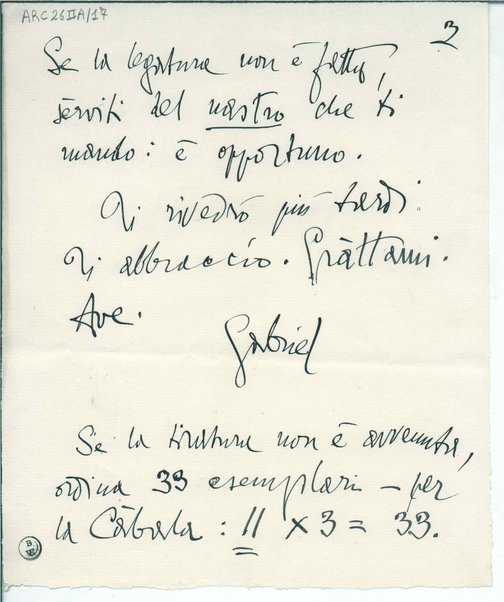 ARC 26 II A/17
3
Se la legatura non è fatta,
sèrviti del nastro che ti
mando: è opportuno.
Ti rivedrò più tardi.
Ti abbraccio. Gràttami.
Ave.
Gabriel
Se la tiratura non è avvenuta,
ordina 33 esemplari – per
la Càbala: 11 x 3 = 33.